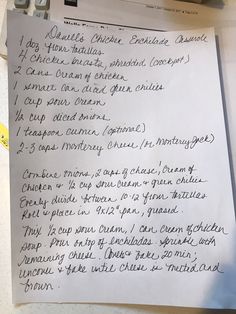 Danell's Chicken Enchilada Casserole
1 doz flour tortillas
4 chicken breasts, shredded (crockpot)
2 cans cream of chicken
1 small can diced green chilies
1 cup sour cream
1/2 cup diced onions
1 teaspoon cumin (optional)
2-3 cups Monterrey cheese (or Monterrey Jack)
Combine onions, 2 cups of cheese, cream of
chicken & 1/2 cup sour cream & green chilies
Evenly divide between 10-12 flour tortillas
Roll & place in 9x12" pan, greased.
Mix 1/2 cup sour cream, 1 can cream of chicken
soup. Pour on top of enchiladas. Sprinkle with
remaining cheese. Cover & bake 20 min,
uncover & bake until cheese is melted and
brown.